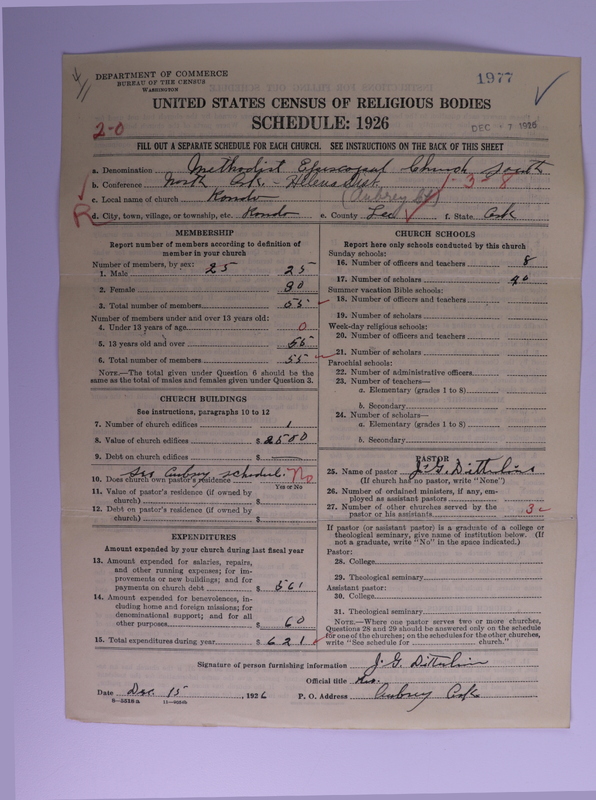 DEPARTMENT OF COMMERCE
BUREAU OF THE CENSUS
WASHINGTON
1977
UNITED STATES CENSUS OF RELIGIOUS BODIES
SCHEDULE: 1926
DEC 17 1926
2-0
FILL OUT A SEPARATE SCHEDULE FOR EACH CHURCH. SEE INSTRUCTIONS ON THE BACK OF THIS SHEET
a. Denomination Methodist Episcopal Church South
b. Conference North Ark - Helena Dist. 1-3-8
c. Local name of church Rondo (Aubrey Ct)
R
d. City, town, village, or township, etc. Rondo e. County Lee f. State Ark
MEMBERSHIP
Report number of members according to definition of member in your church
Number of members, by sex: 25
1. Male 25
2. Female 30
3. Total number of members 55
Number of members under and over 13 years old:
4. Under 13 years of age 0
5. 13 years old and over 55
6. Total number of members 55
NOTE.—The total given under Question 6 should be the same as the total of males and females given under Question 3.
CHURCH BUILDINGS
See instructions, paragraphs 10 to 12
7. Number of church edifices 1
8. Value of church edifices $ 2500
9. Debt on church edifices $
See Aubrey schedule. No
10. Does church own pastor's residence
Yes or No
11. Value of pastor's residence (if owned by church) $
12. Debt on pastor's residence (if owned by church) $
EXPENDITURES
Amount expended by your church during last fiscal year
13. Amount expended for salaries, repairs, and other running expenses; for improvements or new buildings; and for payments on church debt $ 561
14. Amount expended for benevolences, including home and foreign missions; for denominational support; and for all other purposes $ 60
15. Total expenditures during year $ 621
CHURCH SCHOOLS
Report here only schools conducted by this church
Sunday schools:
16. Number of officers and teachers 8
17. Number of scholars 90
Summer vacation Bible schools:
18. Number of officers and teachers
19. Number of scholars
Week-day religious schools:
20. Number of officers and teachers
21. Number of scholars
Parochial schools:
22. Number of administrative officers
23. Number of teachers—
a. Elementary (grades 1 to 8)
b. Secondary
24. Number of scholars—
a. Elementary (grades 1 to 8)
b. Secondary
PASTOR
25. Name of pastor J. G. Ditterline
(If church has no pastor, write "None")
26. Number of ordained ministers, if any, employed as assistant pastors
27. Number of other churches served by the pastor or his assistants 3
If pastor (or assistant pastor) is a graduate of a college or theological seminary, give name of institution below. (If not a graduate, write "No" in the space indicated.)
Pastor:
28. College
29. Theological seminary
Assistant pastor:
30. College
31. Theological seminary
NOTE.—Where one pastor serves two or more churches, Questions 28 and 29 should be answered only on the schedule for one of the churches; on the schedules for the other churches, write "See schedule for church."
Signature of person furnishing information J. G. Ditterline
Official title Rev.
Date Dec. 15, 1926 P. O. Address Aubrey Ark
8—5518a